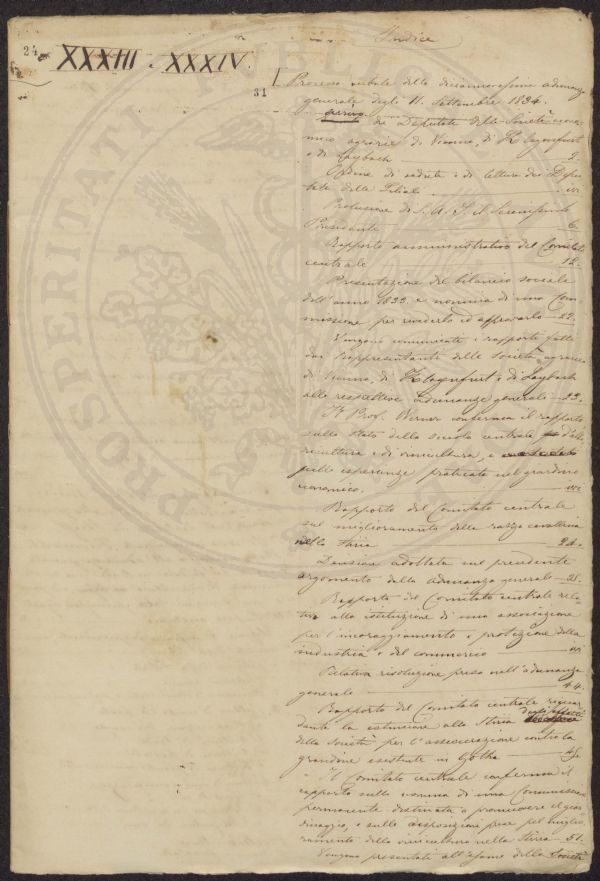 Indice
24
XXXIII e XXXIV.
31
Processo verbale della decimasessima adunanza
generale degli 11. Settembre 1834.
arrivo dei Deputati delle Società econo-
mico agrarie di Vienna, di Klagenfurt
e di Laybach 2.
Ordine di seduta e di lettura dei Depu-
tati delle Filiali ivi
Prolusione di S. A. I. il Serenissimo
Presidente 6.
Rapporto amministrativo del Comitato
centrale 12.
Presentazione del bilancio sociale
dell'anno 1833. e nomina di una Com-
missione per rivederlo ed approvarlo 22.
Vengono comunicati i rapporti fatti
dai Rappresentanti delle Società agrarie
di Vienna, di Klagenfurt e di Laybach
alle respettive adunanze generali 23.
Il Prof. Werner conferma il rapporto
sullo stato della scuola centrale d'a-
gricoltura e di orticultura, e
sulle esperienze praticate nel giardino
economico. ivi
Rapporto del Comitato centrale
sul miglioramento della razza cavallina
nella Stiria 24.
Decisione adottata sul precedente
argomento dalla adunanza generale 28.
Rapporto del Comitato centrale rela-
tivo alla istituzione di una associazione
per l'incoraggiamento e protezione della
industria e del commercio ivi
Relativa risoluzione presa nell'adunanza
generale 44.
Rapporto del Comitato centrale riguar-
dante la estensione alla Stiria degli effetti
della Società per l'assicurazione contro la
grandine esistente in Gotha 45.
Il Comitato centrale conferma il
rapporto sulla nomina di una Commissione
permanente destinata a promuovere il giar-
dinaggio, e sulle disposizioni prese pel miglio-
ramento della viticultura nella Stiria 51.
Vengono presentati all'esame della Società
PROSPERITATI PUBLICAE